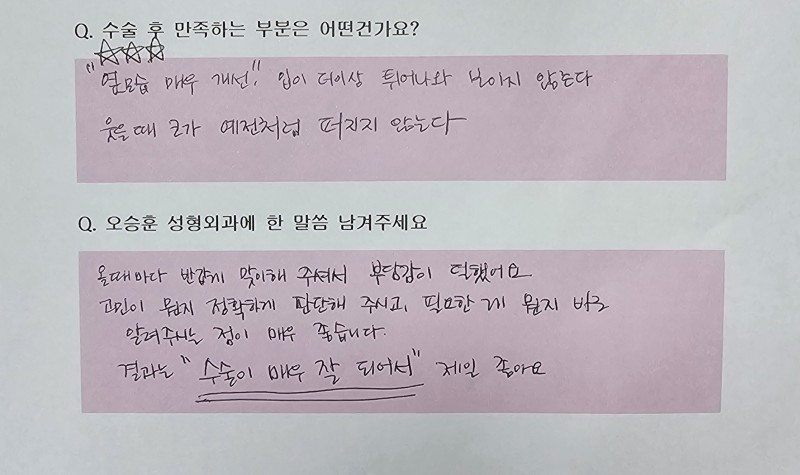 Q. 수술 후 만족하는 부분은 어떤건가요?
☆☆☆
"옆모습 매우 개선!" 입이 더이상 튀어나와 보이지 않는다
웃을때 코가 예전처럼 퍼지지 않는다
Q. 오승훈 성형외과에 한 말씀 남겨주세요
올때마다 반갑게 맞이해 주셔서 부담감이 덜했어요
고민이 뭔지 정확하게 판단해 주시고, 필요한 게 뭔지 바로
알려주시는 점이 매우 좋습니다.
결과는 "수술이 매우 잘 되어서" 제일 좋아요